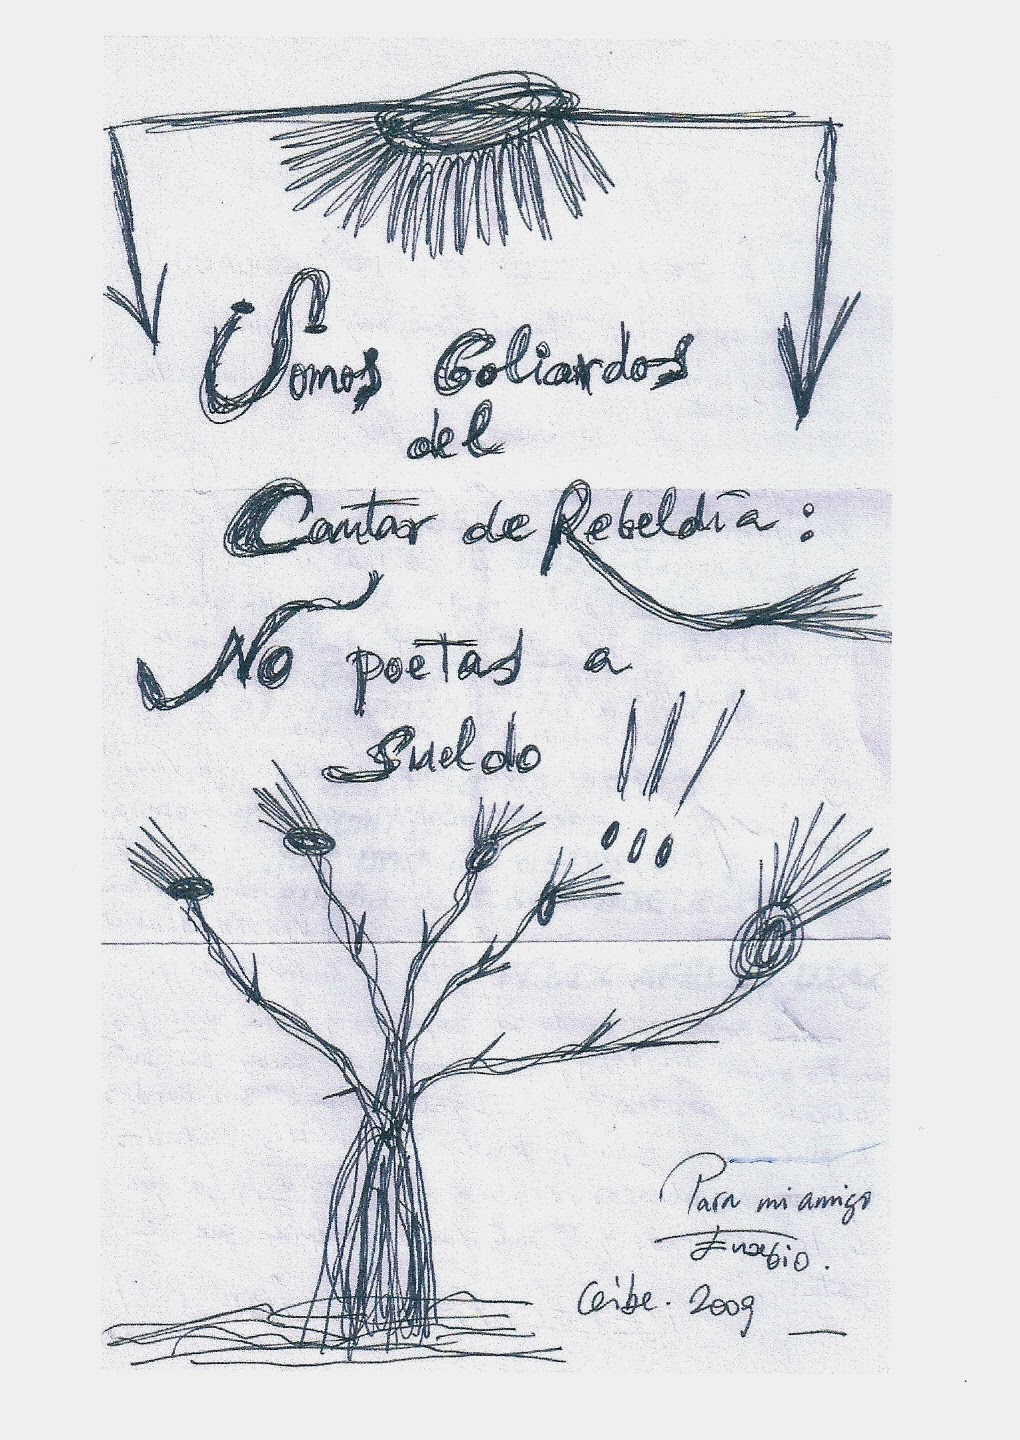 ¡Somos Goliardos
del
Cantar de Rebeldía:
No poetas a
sueldo !!!
Para mi amigo
Eusebio.
Ceibe. 2009